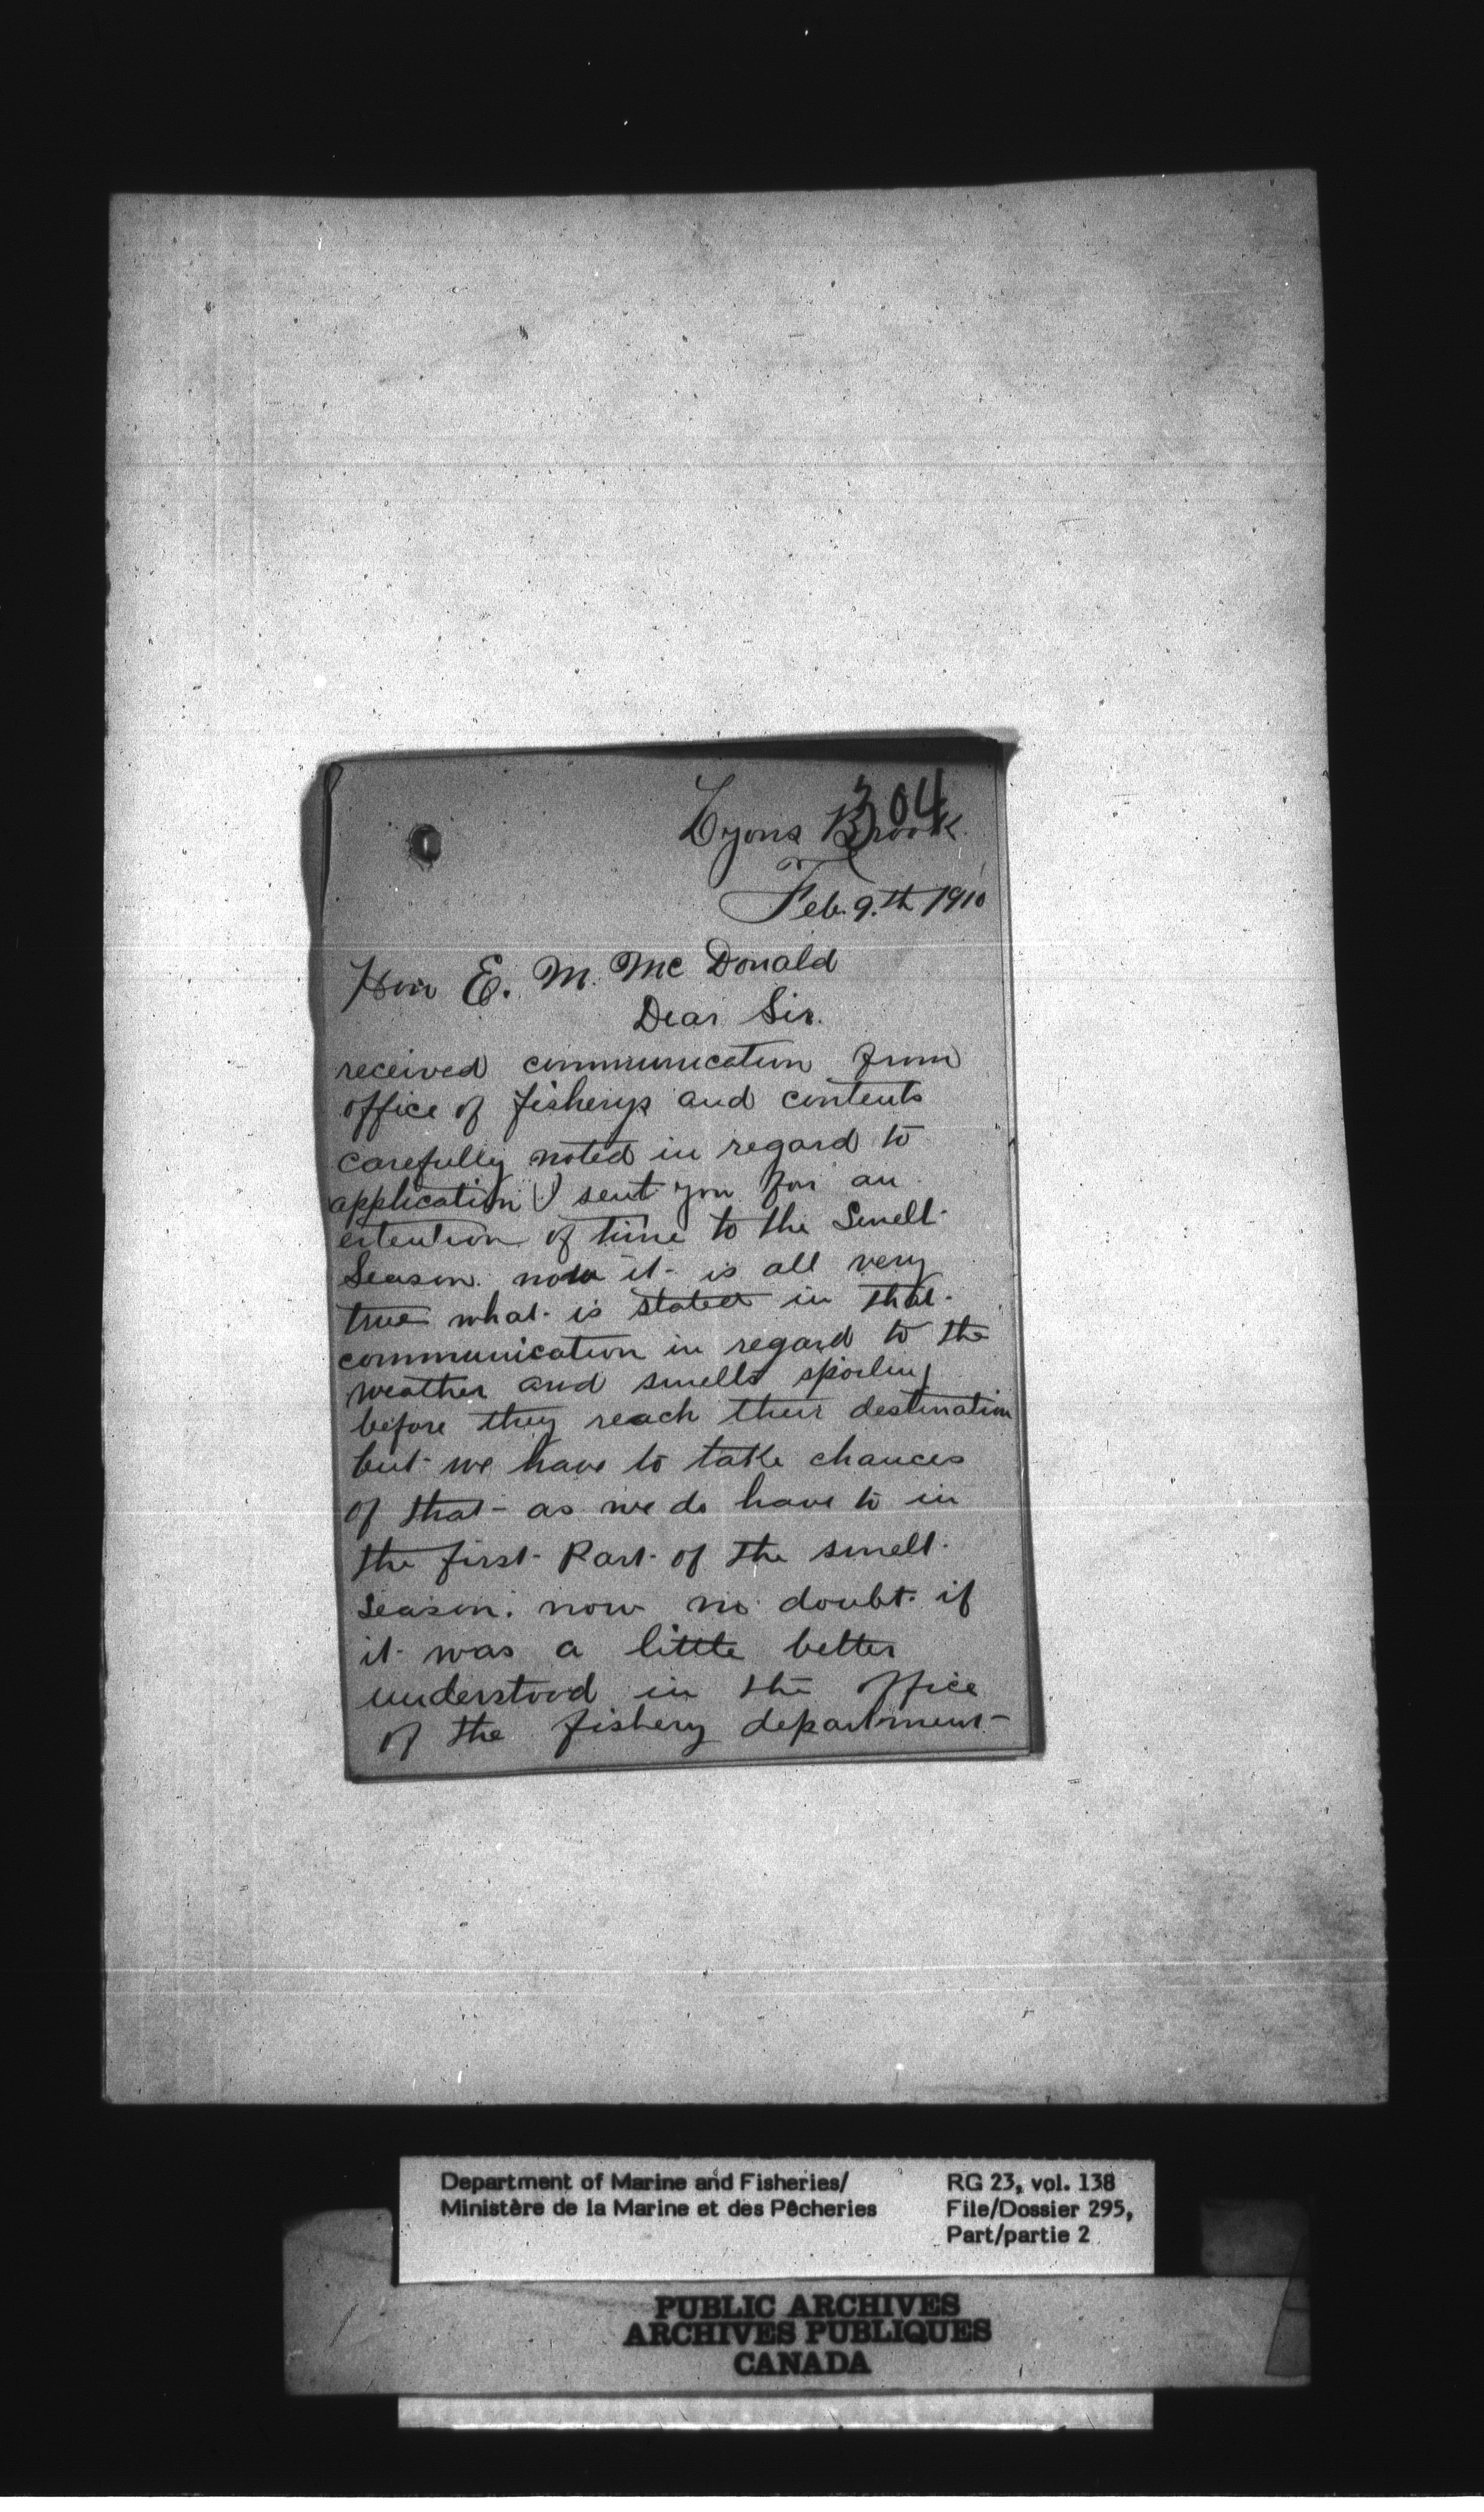 304
Lyons Brook
Feb. 9.th 1910
Hon E. M. Mc Donald
Dear Sir.
received communication from
office of fisherys and contents
carefully noted in regard to
application I sent you for an
extention of time to the Smelt
Season. now it is all very
true what is stated in that
communication in regard to the
weather and smelts spoiling
before they reach their destination
but we have to take chances
of that as we do have to in
the first Part of the smelt
season. now no doubt if
it was a little better
understood in the office
of the fishery department
Department of Marine and Fisheries/
Ministère de la Marine et des Pêcheries
RG 23, vol. 138
File/Dossier 295,
Part/partie 2
PUBLIC ARCHIVES
ARCHIVES PUBLIQUES
CANADA